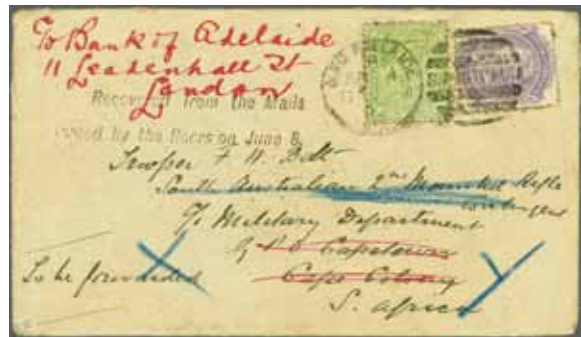 To Bank of Adelaide
11 Leadenhall St
London
Recovered from the Mails
looted by the Boers on June 8.
Trooper F W Bett
South Australian 2nd Mounted Rifle
contingent
c/o Military Department
G P O Capetown
Cape Colony
To be forwarded
S. Africa